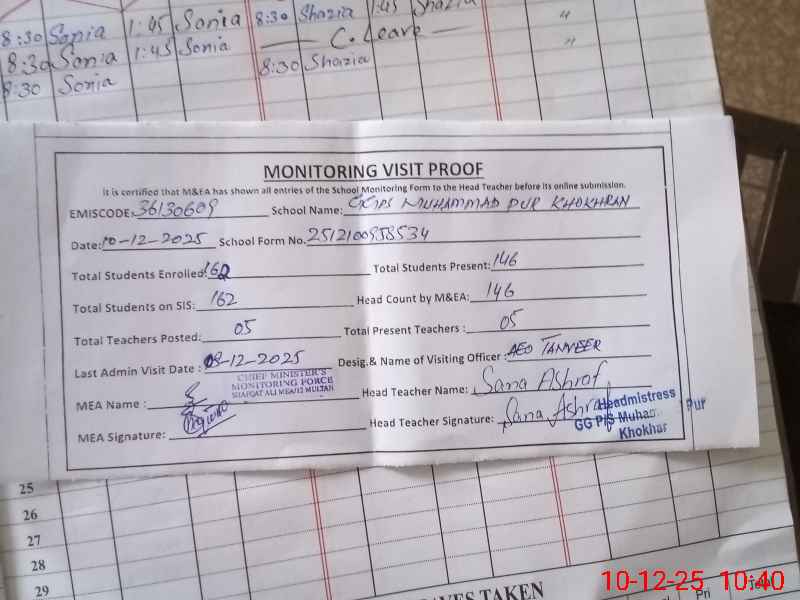 8:30 Sonia 1:45 Sonia 8:30 Shazia 1:45 Shazia "
8:30 Sonia 1:45 Sonia — C. Leave — "
8:30 Sonia 8:30 Shazia
MONITORING VISIT PROOF
It is certified that M&EA has shown all entries of the School Monitoring Form to the Head Teacher before its online submission.
EMISCODE: 36130609 School Name: GGPS MUHAMMAD PUR KHOKHRAN
Date: 10-12-2025 School Form No. 251210095 8534
Total Students Enrolled: 162 Total Students Present: 146
Total Students on SIS: 162 Head Count by M&EA: 146
Total Teachers Posted: 05 Total Present Teachers : 05
Last Admin Visit Date : 08-12-2025 Desig.& Name of Visiting Officer : AEO TANVEER
CHIEF MINISTER'S
MONITORING FORCE
SHAFQAT ALI MEA/12 MULTAN
MEA Name : Head Teacher Name: Sana Ashraf
MEA Signature: Head Teacher Signature: Sana Ashraf
Headmistress
GG P/S Muha Pur
Khokhar
25
26
27
28
29
TAKEN
Pri Total
10-12-25 10:40